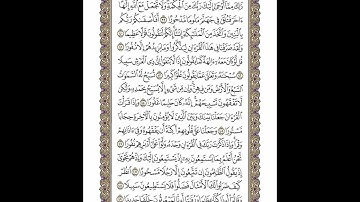 ذَٰلِكَ مِمَّآ أَوْحَىٰٓ إِلَيْكَ رَبُّكَ مِنَ ٱلْحِكْمَةِ وَلَا تَجْعَلْ مَعَ ٱللَّهِ إِلَٰهًا
ءَاخَرَ فَتُلْقَىٰ فِى جَهَنَّمَ مَلُومًا مَّدْحُورًا ٣٩ أَفَأَصْفَىٰكُمْ رَبُّكُم
بِٱلْبَنِينَ وَٱتَّخَذَ مِنَ ٱلْمَلَٰٓئِكَةِ إِنَٰثًا إِنَّكُمْ لَتَقُولُونَ قَوْلًا عَظِيمًا ٤٠
وَلَقَدْ صَرَّفْنَا فِى هَٰذَا ٱلْقُرْءَانِ لِيَذَّكَّرُوا۟ وَمَا يَزِيدُهُمْ إِلَّا نُفُورًا ٤١
قُل لَّوْ كَانَ مَعَهُۥٓ ءَالِهَةٌ كَمَا يَقُولُونَ إِذًا لَّٱبْتَغَوْا۟ إِلَىٰ ذِى ٱلْعَرْشِ سَبِيلًا ٤٢
سُبْحَٰنَهُۥ وَتَعَٰلَىٰ عَمَّا يَقُولُونَ عُلُوًّا كَبِيرًا ٤٣ تُسَبِّحُ لَهُ ٱلسَّمَٰوَٰتُ
ٱلسَّبْعُ وَٱلْأَرْضُ وَمَن فِيهِنَّ وَإِن مِّن شَىْءٍ إِلَّا يُسَبِّحُ بِحَمْدِهِۦ وَلَٰكِن
لَّا تَفْقَهُونَ تَسْبِيحَهُمْ إِنَّهُۥ كَانَ حَلِيمًا غَفُورًا ٤٤ وَإِذَا قَرَأْتَ
ٱلْقُرْءَانَ جَعَلْنَا بَيْنَكَ وَبَيْنَ ٱلَّذِينَ لَا يُؤْمِنُونَ بِٱلْءَاخِرَةِ حِجَابًا
مَّسْتُورًا ٤٥ وَجَعَلْنَا عَلَىٰ قُلُوبِهِمْ أَكِنَّةً أَن يَفْقَهُوهُ وَفِىٓ ءَاذَانِهِمْ
وَقْرًا وَإِذَا ذَكَرْتَ رَبَّكَ فِى ٱلْقُرْءَانِ وَحْدَهُۥ وَلَّوْا۟ عَلَىٰٓ أَدْبَٰرِهِمْ نُفُورًا ٤٦
نَّحْنُ أَعْلَمُ بِمَا يَسْتَمِعُونَ بِهِۦٓ إِذْ يَسْتَمِعُونَ إِلَيْكَ وَإِذْ هُمْ نَجْوَىٰٓ
إِذْ يَقُولُ ٱلظَّٰلِمُونَ إِن تَتَّبِعُونَ إِلَّا رَجُلًا مَّسْحُورًا ٤٧ ٱنظُرْ
كَيْفَ ضَرَبُوا۟ لَكَ ٱلْأَمْثَالَ فَضَلُّوا۟ فَلَا يَسْتَطِيعُونَ سَبِيلًا ٤٨
وَقَالُوٓا۟ أَءِذَا كُنَّا عِظَٰمًا وَرُفَٰتًا أَءِنَّا لَمَبْعُوثُونَ خَلْقًا جَدِيدًا ٤٩